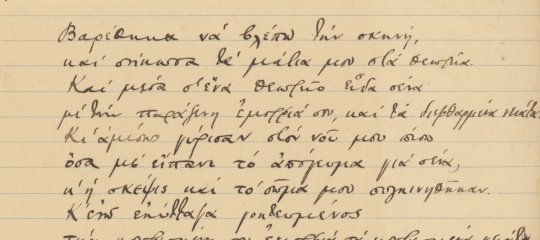 Βαρέθηκα νὰ βλέπω τὴν σκηνή,
καὶ σήκωσα τὰ μάτια μου στὰ θεωρεῖα.
Καὶ μέσα σ' ἕνα θεωρεῖο εἶδα σένα
μὲ τὴν παράξενη ἐμορφιά σου, καὶ τὰ διεφθαρμένα νειάτα.
Κι ἀμέσως γύρισαν στὸν νοῦ μου πίσω
ὅσα μὲ εἴπανε τὸ ἀπόγευμα γιὰ σένα,
κ' ἡ σκέψις καὶ τὸ σῶμα μου συγκινήθηκαν.
Κ' ἐνῶ ἐκύτταζα γοητευμένος